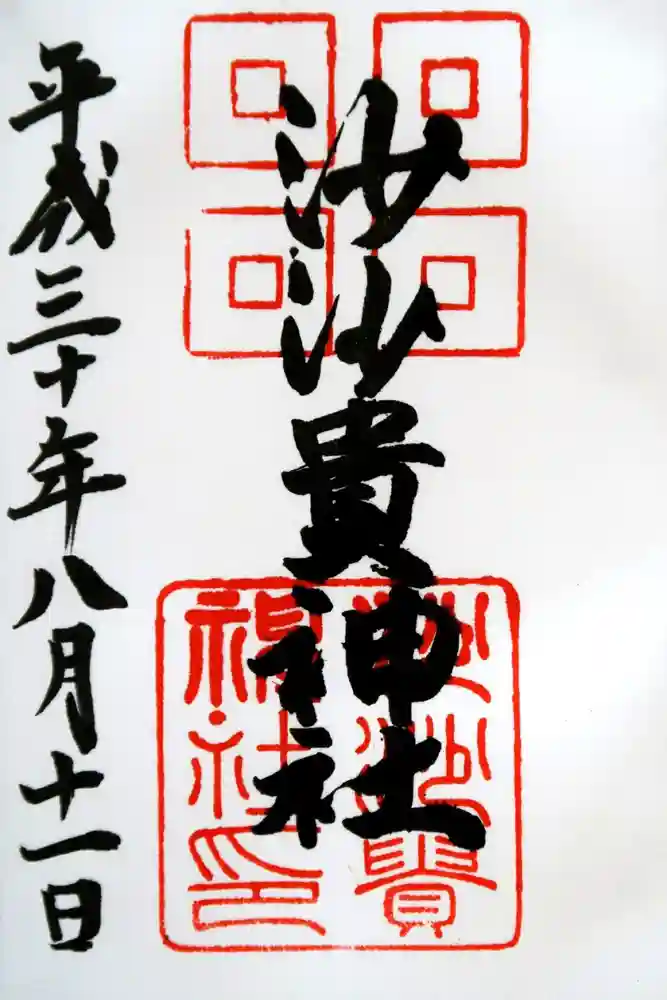 沙沙貴神社
平成三十年八月十一日
沙沙貴
神社印